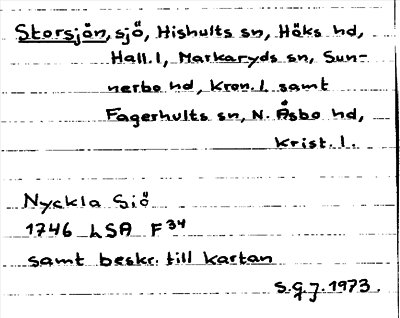 Storsjön, sjö, Hishults sn, Höks hd,
Hall. l, Markaryds sn, Sun-
nerbo hd, Kron. l. samt
Fagerhults sn, N. Åsbo hd,
Krist. l.
Nyckla Siö
1746 LSA F 34
samt beskr. till kartan
S.G.J. 1973.